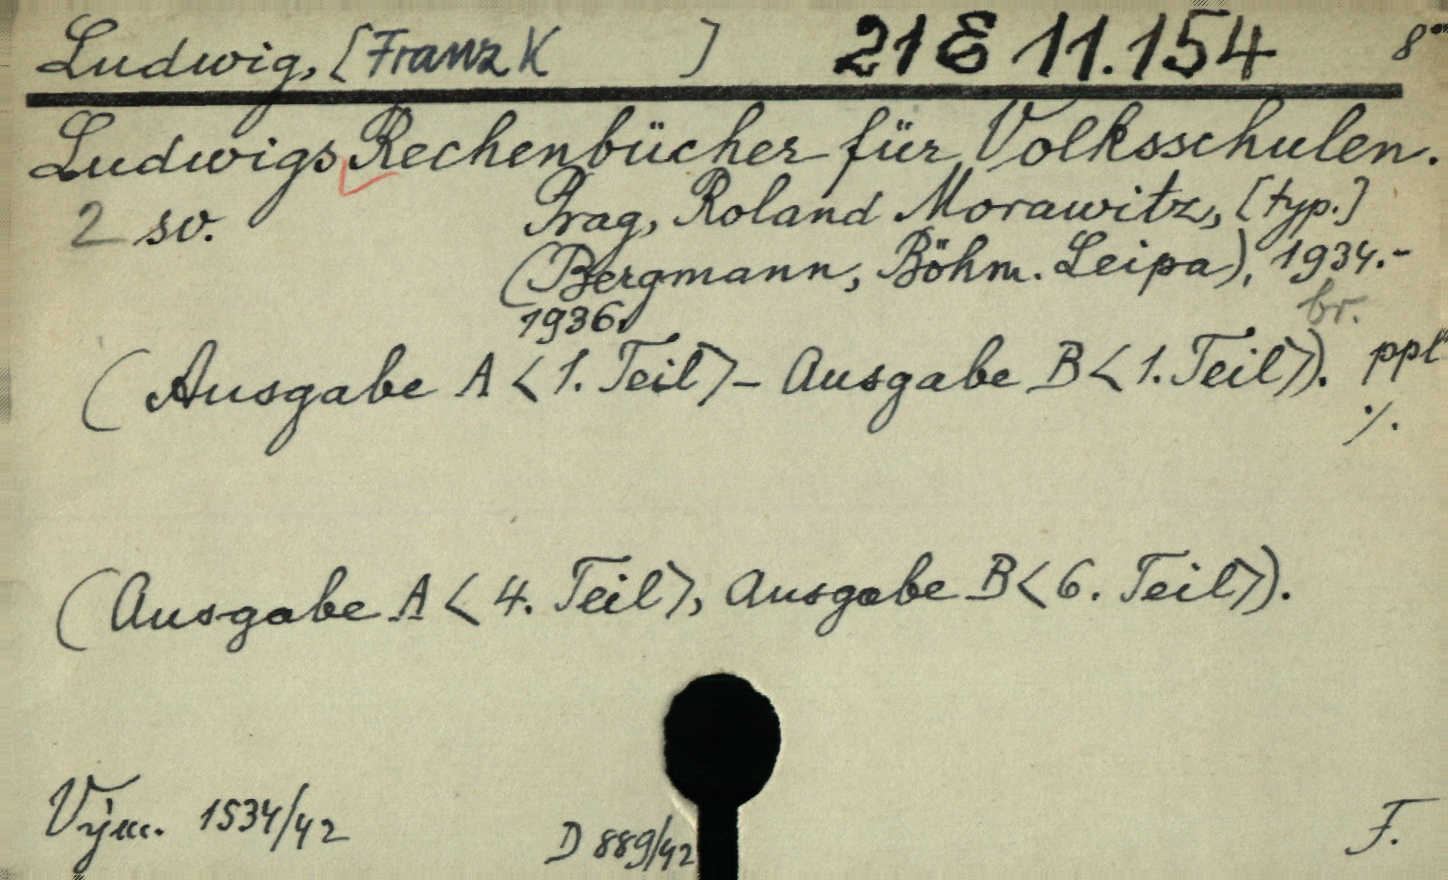 Ludwig, [Franz K ] 21 E 11.154 8°
Ludwigs Rechenbücher für Volksschulen.
2 sv. Prag, Roland Morawitz, [typ.]
(Bergmann, Böhm. Leipa), 1934.-
1936. br.
(Ausgabe A <1. Teil> - Ausgabe B <1. Teil>). ppl
./.
(Ausgabe A <4. Teil>, Ausgabe B <6. Teil>).
Vým. 1534/42 D 889/42 F.